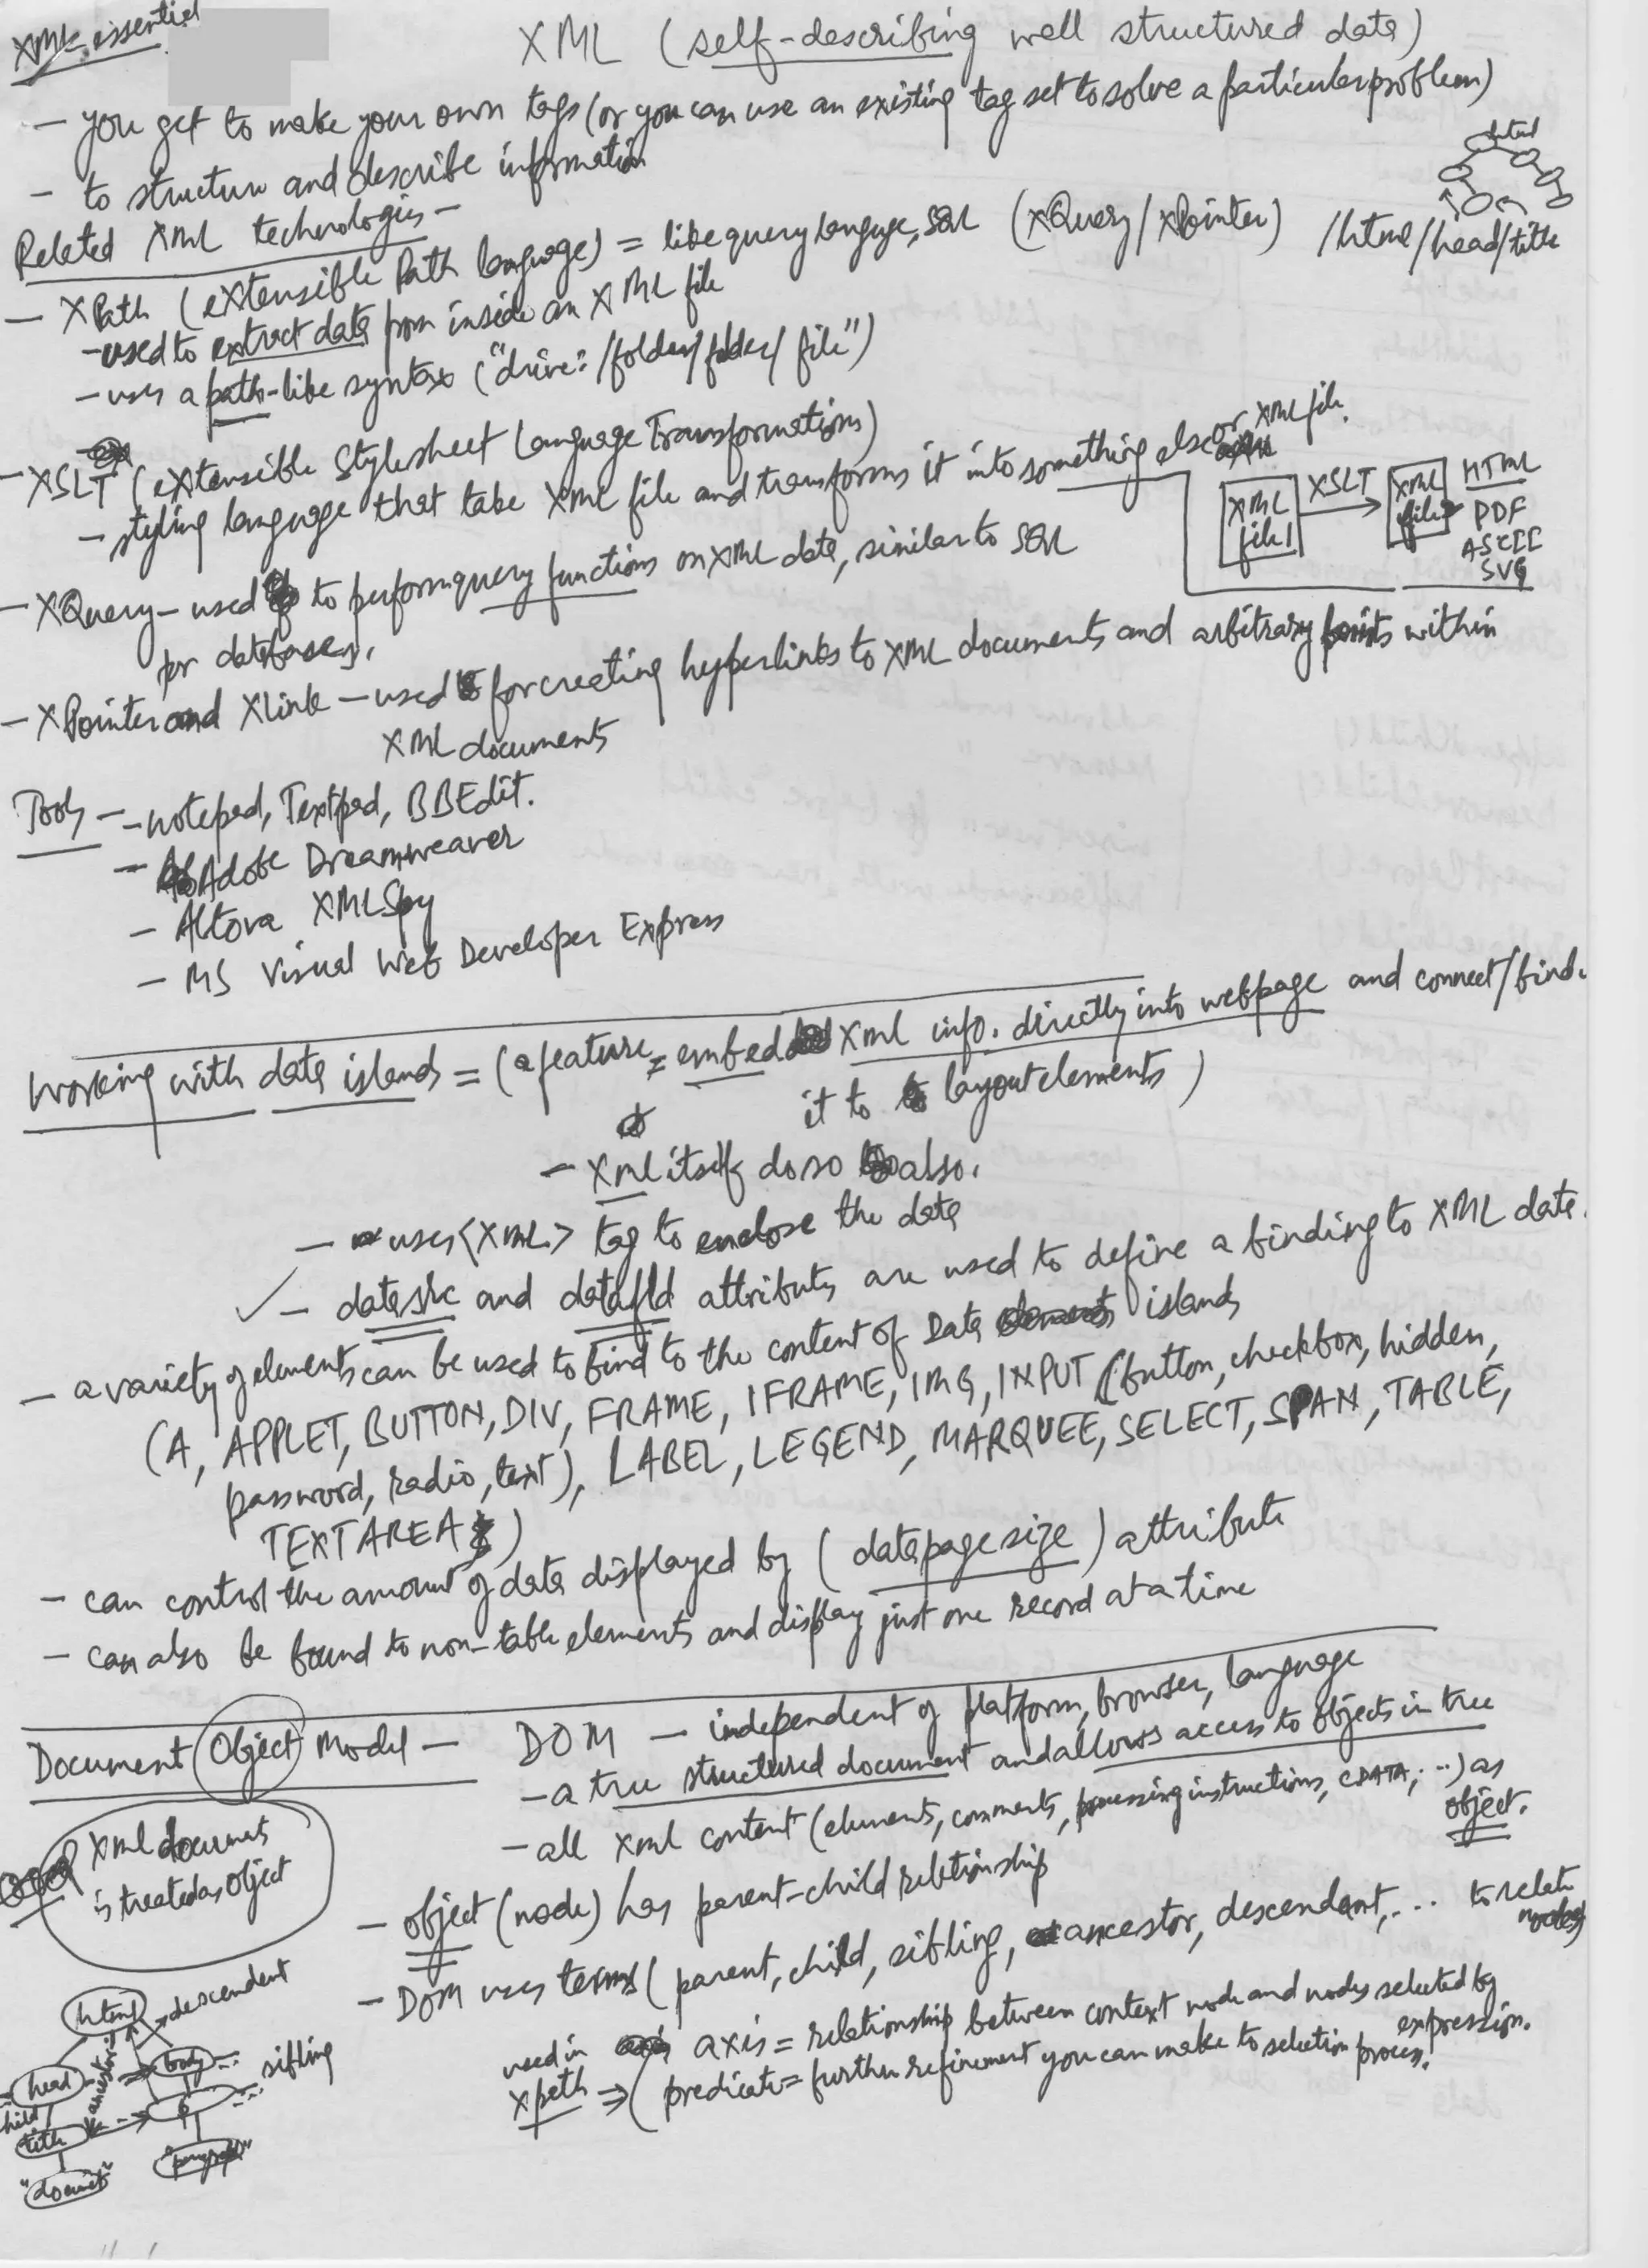 XML essential
XML (self-describing well structured data)
- you get to make your own tags (or you can use an existing tag set to solve a particular problem)
- to structure and describe information
html
Related XML technologies -
- XPath (eXtensible Path language) = like query language, SQL (XQuery/XPointer) /html/head/title
- used to extract data from inside an XML file
- uses a path-like syntax ("drive:/folder/folder/file")
- XSLT (eXtensible Stylesheet Language Transformations)
- styling language that take XML file and transforms it into something else or XML file.
XML file1 XSLT XML file2 HTML
PDF
ASCII
SVG
- XQuery - used to perform query functions on XML data, similar to SQL
for databases.
- XPointer and XLink - used for creating hyperlinks to XML documents and arbitrary points within
XML documents
Tools - - notepad, Textpad, BBEdit.
- Adobe Dreamweaver
- Altova XMLSpy
- MS Visual Web Developer Express
Working with data islands = (a feature = embed Xml info. directly into webpage and connect/bind.
it to layout elements)
- Xml itself do so also.
- uses <XML> tag to enclose the data
✓ - datasrc and datafld attributes are used to define a binding to XML data.
- a variety of elements can be used to bind to the content of Data islands
(A, APPLET, BUTTON, DIV, FRAME, IFRAME, IMG, INPUT (button, checkbox, hidden,
password, radio, text), LABEL, LEGEND, MARQUEE, SELECT, SPAN, TABLE,
TEXTAREA)
- can control the amount of data displayed by (datapagesize) attribute
- can also be bound to non-table elements and display just one record at a time
Document Object Model - DOM - independent of platform, browser, language
- a tree structured document and allows access to objects in tree
- all Xml content (elements, comments, processing instructions, CDATA, ...) as
object.
Xml document
is treated as object
- object (node) has parent-child relationship
- DOM uses terms (parent, child, sibling, ancestor, descendant, ... to relate
nodes)
used in axis = relationship between context node and nodes selected by
expression.
xpath ⇒ (predicate = further refinement you can make to selection process.
html descendent
ancestor
head body sibling
child
title
"paragraph"